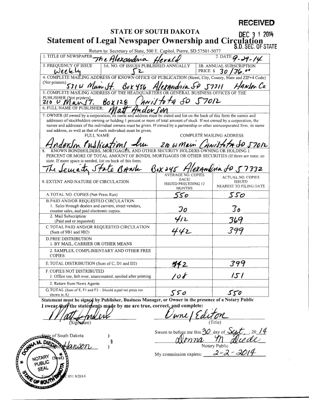 RECEIVED
DEC 31 2014
S.D. SEC. OF STATE
STATE OF SOUTH DAKOTA
Statement of Legal Newspaper Ownership and Circulation
Return to: Secretary of State, 500 E. Capitol, Pierre, SD 57501-5077
1. TITLE OF NEWSPAPER The Alexandria Herald 2. DATE 9-29-14
3. FREQUENCY OF ISSUE Weekly
3A. NO. OF ISSUES PUBLISHED ANNUALLY 52
3B. ANNUAL SUBSCRIPTION PRICE $ 30/36.00
4. COMPLETE MAILING ADDRESS OF OFFICE OF PUBLICATION (Street, City, County, State and ZIP+4 Code) (Not printers)
531 W Main St. Box 456 Alexandria SD 57311 Hanson Co
5. COMPLETE MAILING ADDRESS OF THE HEADQUARTERS OR GENERAL BUSINESS OFFICES OF THE PUBLISHER (Not printers)
210 W Main St. Box 128 Canistota SD 57012
6. FULL NAME OF PUBLISHER: Matt Anderson
7. OWNER (If owned by a corporation, its name and address must be stated and list on the back of this form the names and
addresses of shareholders owning or holding 1 percent or more of total amount of stock. If not owned by a corporation, the
names and addresses of the individual owners must be given. If owned by a partnership or other unincorporated firm, its name
and address, as well as that of each individual must be given.
FULL NAME COMPLETE MAILING ADDRESS
Anderson Publications Inc 210 W Main Canistota SD 57012
8. KNOWN BONDHOLDERS, MORTGAGES, AND OTHER SECURITY HOLDERS OWNING OR HOLDING 1
PERCENT OR MORE OF TOTAL AMOUNT OF BONDS, MORTGAGES OR OTHER SECURITIES (If there are none, so
state. If more space is needed, list on back of this form.
The Security State Bank Box 245 Alexandria SD 57332
9. EXTENT AND NATURE OF CIRCULATION
AVERAGE NO. COPIES EACH ISSUED PRECEDING 12 MONTHS
ACTUAL NO. COPIES ISSUED NEAREST TO FILING DATE
A. TOTAL NO. COPIES (Net Press Run) 550 550
B. PAID AND/OR REQUESTED CIRCULATION
1. Sales through dealers and carriers, street vendors, counter sales, and paid electronic copies. 30 30
2. Mail Subscription (Paid and or requested) 412 369
C. TOTAL PAID AND/OR REQUESTED CIRCULATION (Sum of 9B1 and 9B2) 442 399
D. FREE DISTRIBUTION
1. BY MAIL, CARRIER OR OTHER MEANS
2. SAMPLES, COMPLIMENTARY AND OTHER FREE COPIES
E. TOTAL DISTRIBUTION (Sum of C, D1 and D2) 442 399
F. COPIES NOT DISTRIBUTED
1. Office use, left over, unaccounted, spoiled after printing 108 151
2. Return from News Agents
G. TOTAL (Sum of E, F1 and F2 Should equal net press run shown in A) 550 550
Statement must be signed by Publisher, Business Manager, or Owner in the presence of a Notary Public
I swear that the statements made by me are true, correct, and complete:
Matt Anderson Owner/Editor
(Signature) (Title)
State of South Dakota
Hanson
Sworn to before me this 30 day of Sept., 2014
Donna M
Notary Public
My commission expires: 2-2-2014
DONNA M.
NOTARY PUBLIC
SEAL
STATE OF SOUTH